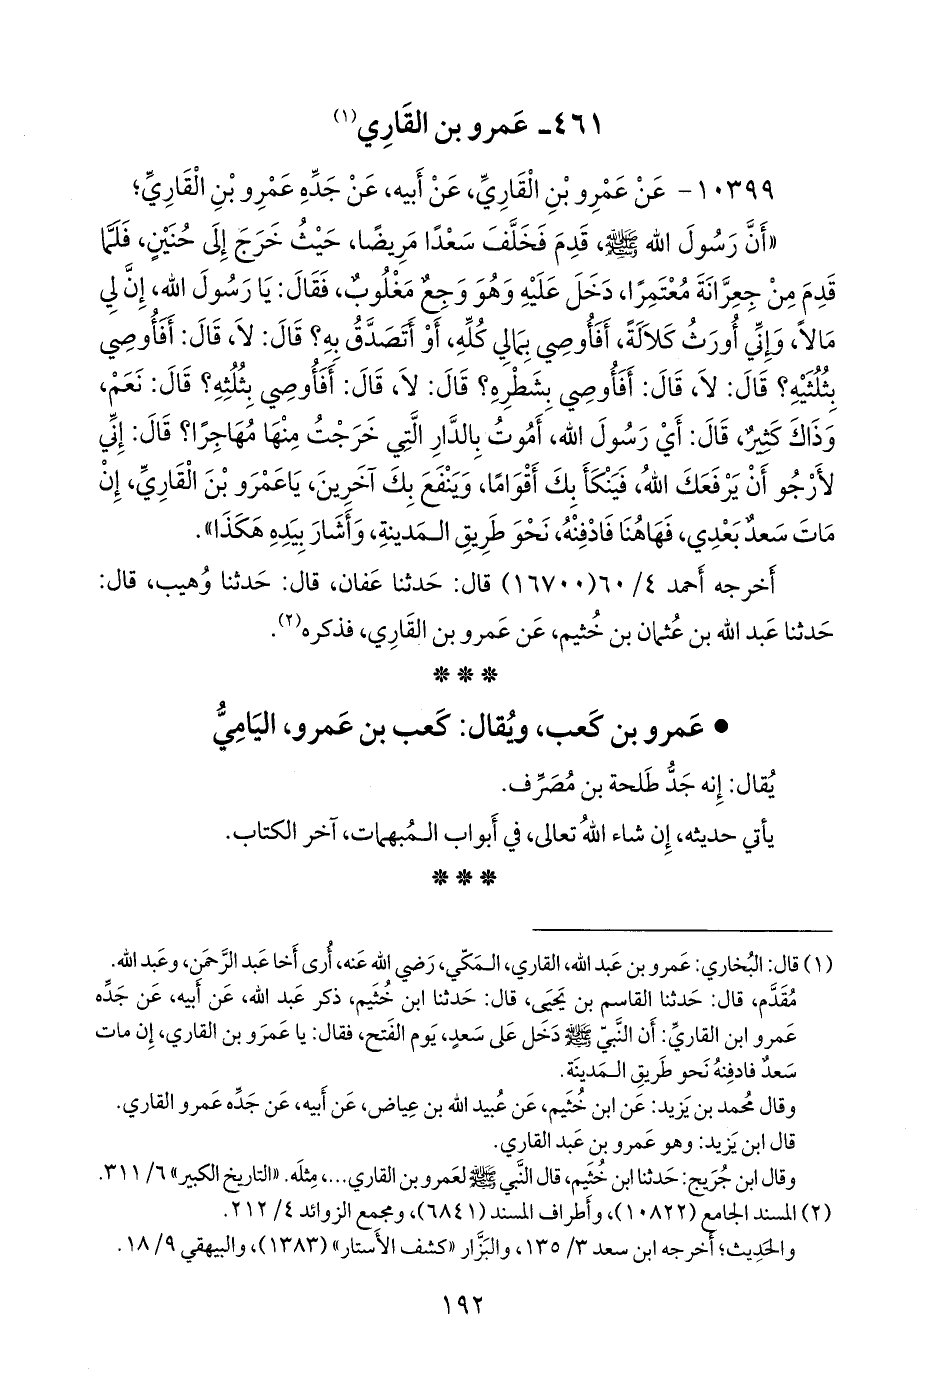 ٤٦١ـ عَمرو بن القَارِي(١)
١٠٣٩٩ - عَنْ عَمْرِو بْنِ الْقَارِيِّ، عَنْ أَبيه، عَنْ جَدِّهِ عَمْرِو بْنِ الْقَارِيِّ؛
«أَنَّ رَسُولَ الله ﷺ، قَدِمَ فَخَلَّفَ سَعْدًا مَرِيضًا، حَيْثُ خَرَجَ إِلَى حُنَيْنٍ، فَلَمَّا
قَدِمَ مِنْ جِعِرَّانَةَ مُعْتَمِرًا، دَخَلَ عَلَيْهِ وَهُوَ وَجِعٌ مَغْلُوبٌ، فَقَالَ: يَا رَسُولَ الله، إِنَّ لِي
مَالاً، وَإِنِّي أُورَثُ كَلاَلَةً، أَفَأُوصِي بِمَالِي كُلِّهِ، أَوْ أَتَصَدَّقُ بِهِ؟ قَالَ: لاَ، قَالَ: أَفَأُوصِي
بِثُلُثَيْهِ؟ قَالَ: لاَ، قَالَ: أَفَأُوصِي بِشَطْرِهِ؟ قَالَ: لاَ، قَالَ: أَفَأُوصِي بِثُلُثِهِ؟ قَالَ: نَعَمْ،
وَذَاكَ كَثِيرٌ، قَالَ: أَيْ رَسُولَ الله، أَمُوتُ بِالدَّارِ الَّتِي خَرَجْتُ مِنْهَا مُهَاجِرًا؟ قَالَ: إِنِّي
لأَرْجُو أَنْ يَرْفَعَكَ اللهُ، فَيَنْكَأَ بِكَ أَقْوَامًا، وَيَنْفَعَ بِكَ آخَرِينَ، يَاعَمْرَو بْنَ الْقَارِيِّ، إِنْ
مَاتَ سَعدٌ بَعْدِي، فَهَاهُنَا فَادْفِنْهُ، نَحْوَ طَرِيقِ الـمَدينةِ، وَأَشَارَ بِيَدِهِ هَكَذَا».
أَخرجه أَحمد ٤/ ٦٠(١٦٧٠٠) قال: حَدثنا عَفان، قال: حَدثنا وُهيب، قال:
حَدثنا عَبد الله بن عُثمان بن خُثيم، عَن عَمرو بن القَاري، فذكره(٢).
* * *
● عَمرو بن كَعب، ويُقال: كَعب بن عَمرو، اليَامِيُّ
يُقال: إِنه جَدُّ طَلحة بن مُصَرِّف.
يأتي حديثه، إِن شاء اللهُ تعالى، في أَبواب الـمُبهمات، آخر الكتاب.
* * *
(١) قال: البُخاري: عَمرو بن عَبد الله، القاري، الـمَكّي، رَضي الله عَنه، أُرى أَخا عَبد الرَّحمَن، وعَبد الله.
مُقَدَّم، قال: حَدثنا القاسم بن يَحيَى، قال: حَدثنا ابن خُثَيم، ذكر عَبد الله، عَن أَبيه، عَن جَدِّه
عَمرو ابن القاريِّ: أَن النَّبيّ ﷺ دَخَل عَلى سَعدٍ، يَوم الفَتح، فقال: يا عَمرَو بن القاري، إِن مات
سَعدٌ فادفِنهُ نَحو طَريقِ الـمَدينَة.
وقال مُحمد بن يَزيد: عَن ابن خُثَيم، عَن عُبيد الله بن عِياض، عَن أَبيه، عَن جَدِّه عَمرو القاري.
قال ابن يَزيد: وهو عَمرو بن عَبد القاري.
وقال ابن جُرَيج: حَدثنا ابن خُثَيم، قال النَّبي ﷺ لعَمرو بن القاري...، مِثلَه. «التاريخ الكبير» ٦/ ٣١١.
(٢) المسند الجامع (١٠٨٢٢)، وأَطراف المسند (٦٨٤١)، ومجمع الزوائد ٤/ ٢١٢.
والحَدِيث؛ أَخرجه ابن سعد ٣/ ١٣٥، والبَزَّار «كشف الأَستار» (١٣٨٣)، والبيهقي ٩/ ١٨.
١٩٢